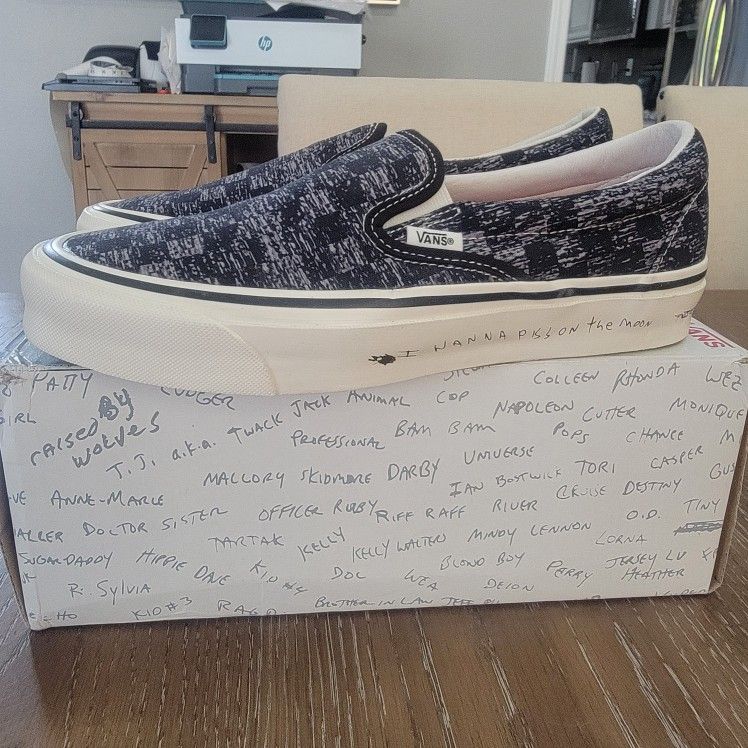 hp
VANS®
I WANNA PISS ON the MOON
VANS
PATTY
RAISED BY WOLVES
T.J. a.k.a. TWACK JACK ANIMAL COP
COLLEEN RHONDA WEZ
NAPOLEON CUTTER MONIQUE
PROFESSIONAL BAM BAM POPS CHANCE
MALLORY SKIDMORE DARBY UNIVERSE
IAN BOSTWICK TORI CASPER
ANNE-MARIE
DOCTOR SISTER OFFICER RUBY RIFF RAFF RIVER CRUISE DESTINY
TARTAK KELLY KELLY WALTERS MINDY LENNON O.D. TINY
SUGAR-DADDY HIPPIE DAVE KID #4 DOC BLOND BOY LORNA
R. SYLVIA WEA DEION PERRY JERSEY LU HEATHER
KID #3 BROTHER IN LAW JEFF